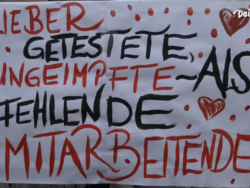 LIEBER
GETESTETE,
UNGEIMPFTE - ALS
FEHLENDE
MITARBEITENDE